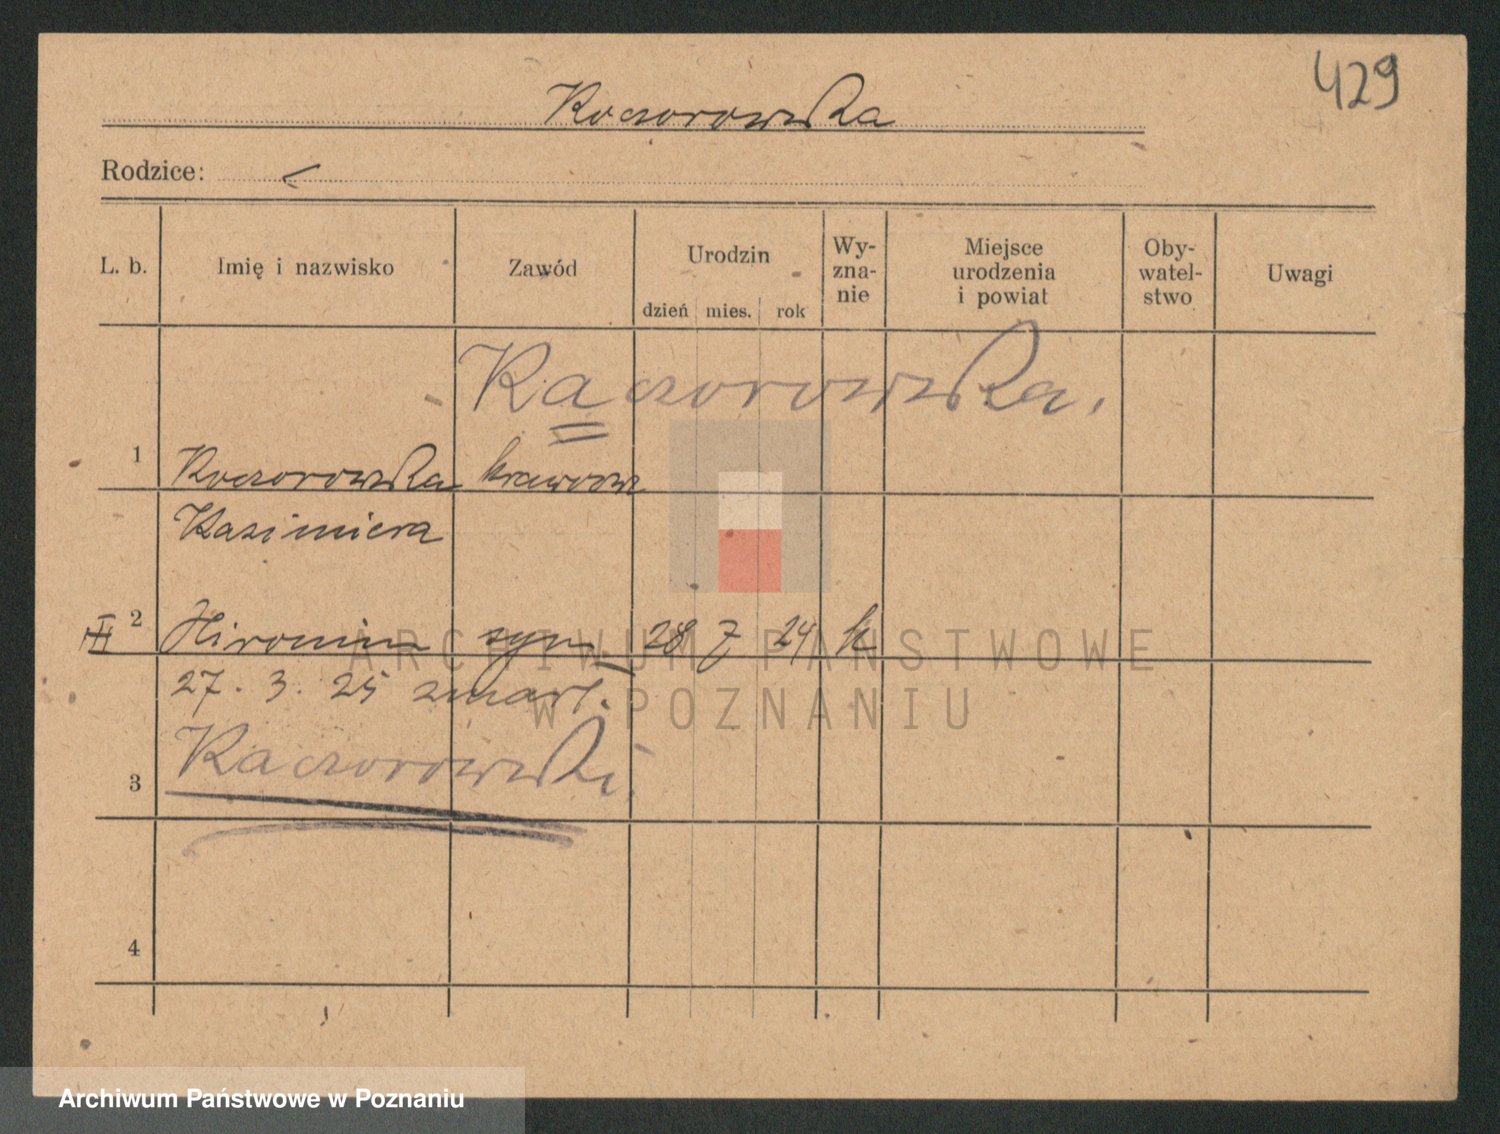 429
Koczorowska
Rodzice:
L. b. Imię i nazwisko Zawód Urodzin dzień mies. rok Wy-zna-nie Miejsce urodzenia i powiat Oby-watel-stwo Uwagi
Kaczorowska.
1 Koczorowska
Kazimiera
2 Hironim syn 28 7 24 k
27. 3. 25 zmarł.
3 Kaczorowski.
4
ARCHIWUM PAŃSTWOWE
W POZNANIU
Archiwum Państwowe w Poznaniu